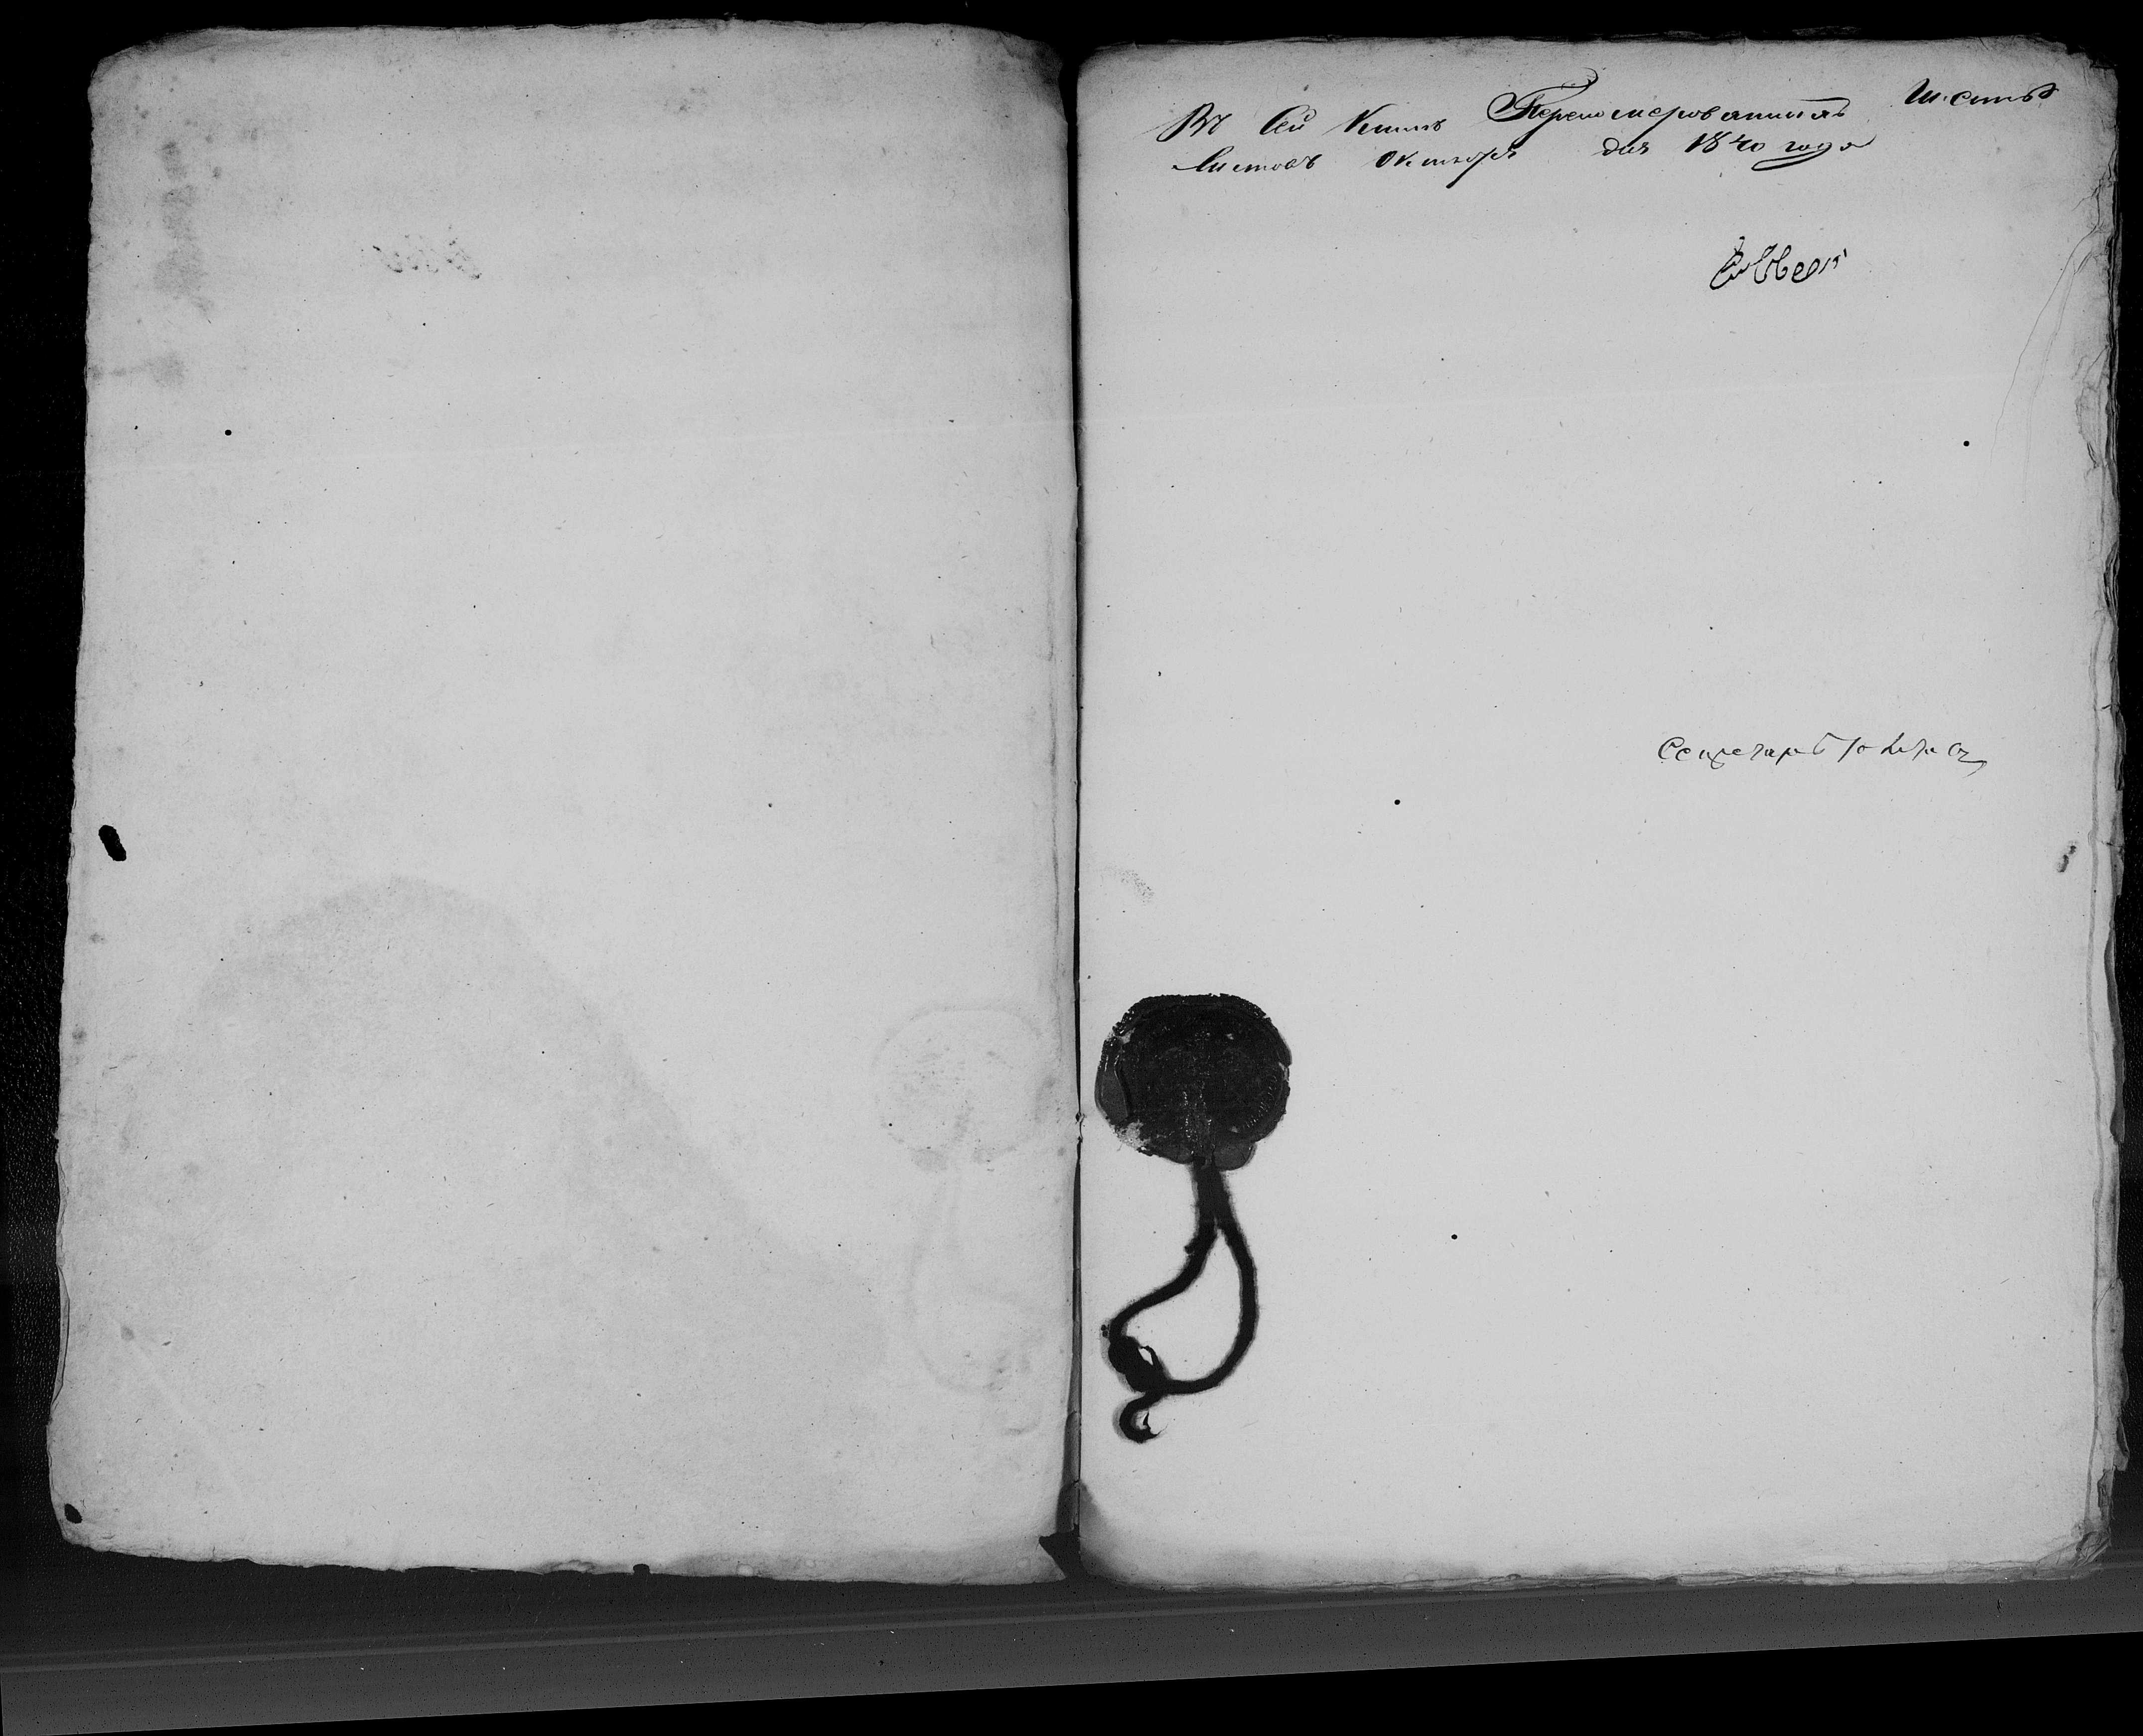 Въ Сей Книгъ Перенумерованныхъ Шесть
Листовъ Октября дня 1840 года
Секретарь